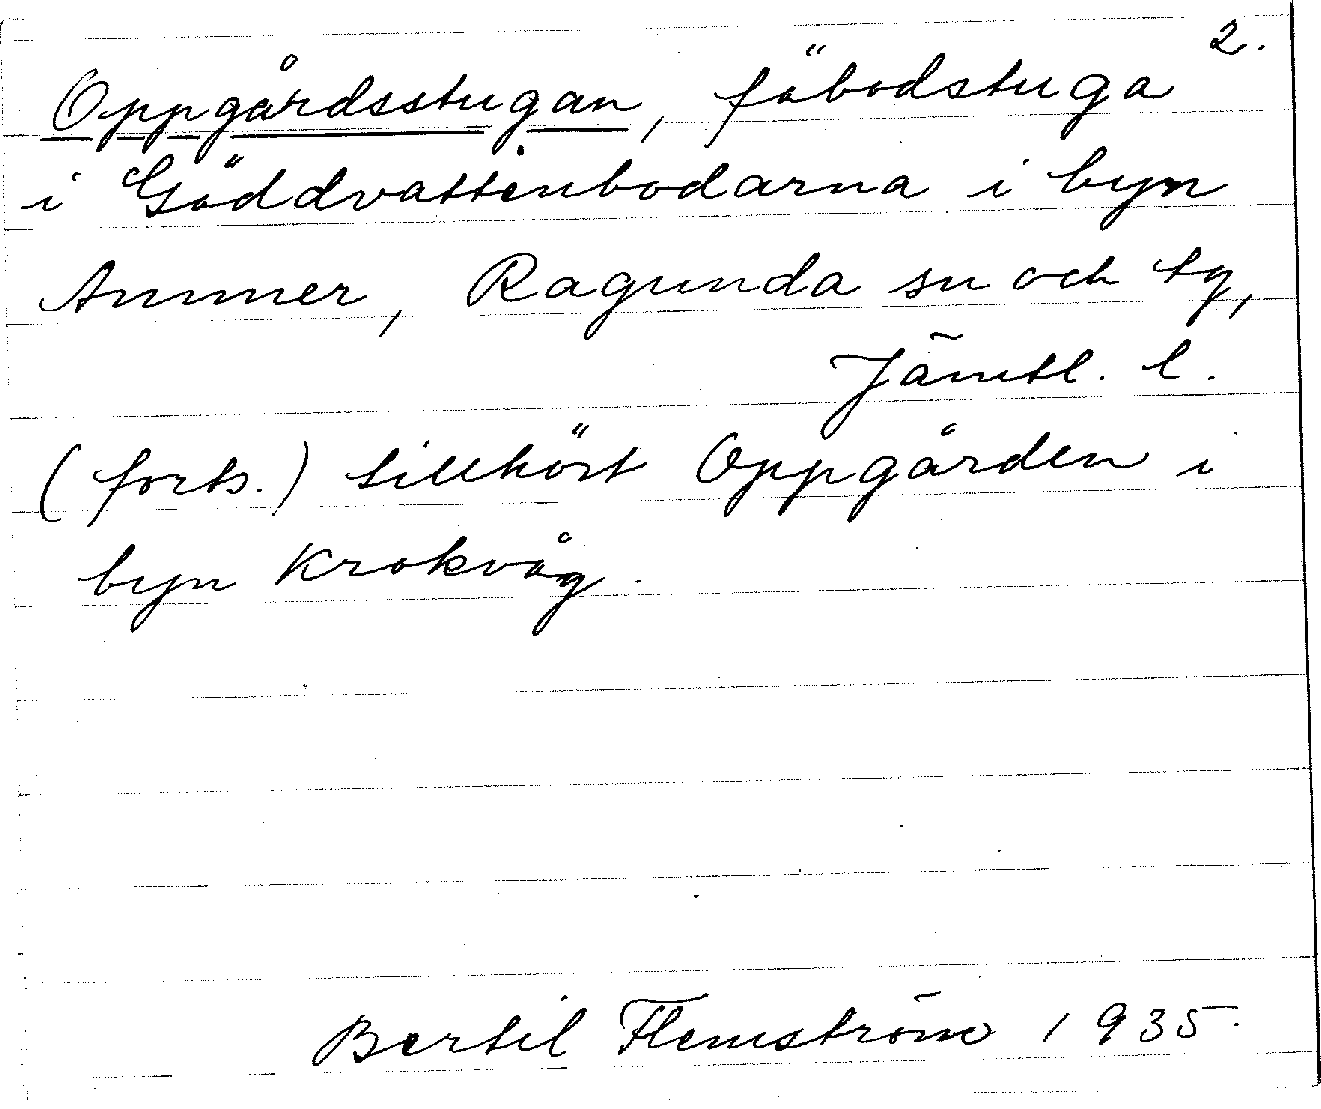 2.
Oppgårdsstugan, fäbodstuga
i Göddvattenbodarna i byn
Ammer, Ragunda sn och tg,
Jämtl. l.
(forts.) tillhört Oppgården i
byn Krokvåg.
Bertil Flemström 1935.